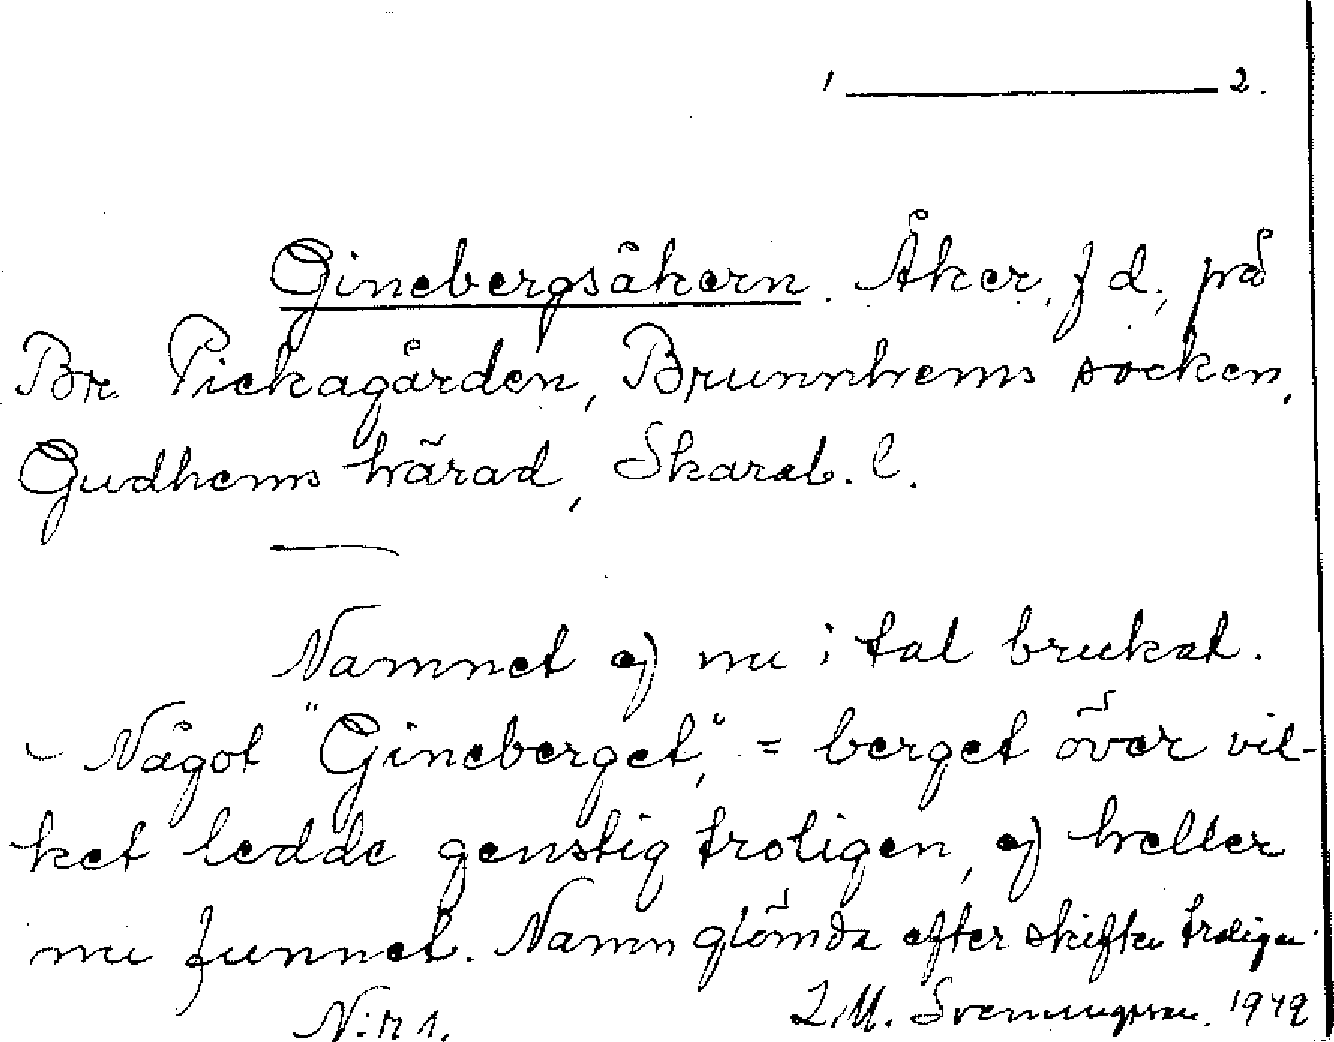 1 ————— 2.
Ginebergsåkern. Åker, f d, på
Br. Pickagården, Brunnhems socken,
Gudhems härad, Skarab. l.
Namnet ej nu i tal brukat.
- Något "Gineberget", = berget över vil-
ket ledde genstig troligen, ej heller
nu funnet. Namn glömda efter skiften troligen.
N:r 1. L.M. Svenungsson. 1949